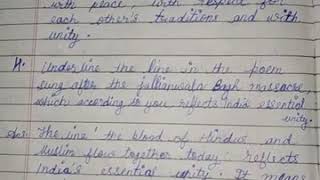 with peace, with respect for
each other's traditions and with
unity.
4. Underline the line in the poem
sung after the Jallianwala Bagh massacre,
which according to you reflects India essential
unity.
Ans The line 'the blood of Hindus and
Muslim flows together today' reflects
India's essential unity. It means